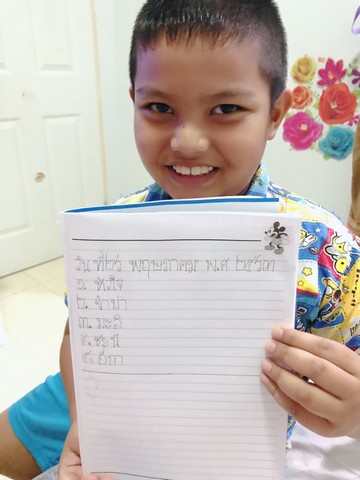 วันที่๒๖ พฤษภาคม พ.ศ ๒๕๖๓
๑.
๒. จำปา
๓. มะลิ
๔. ชะนี
๕. อีกา